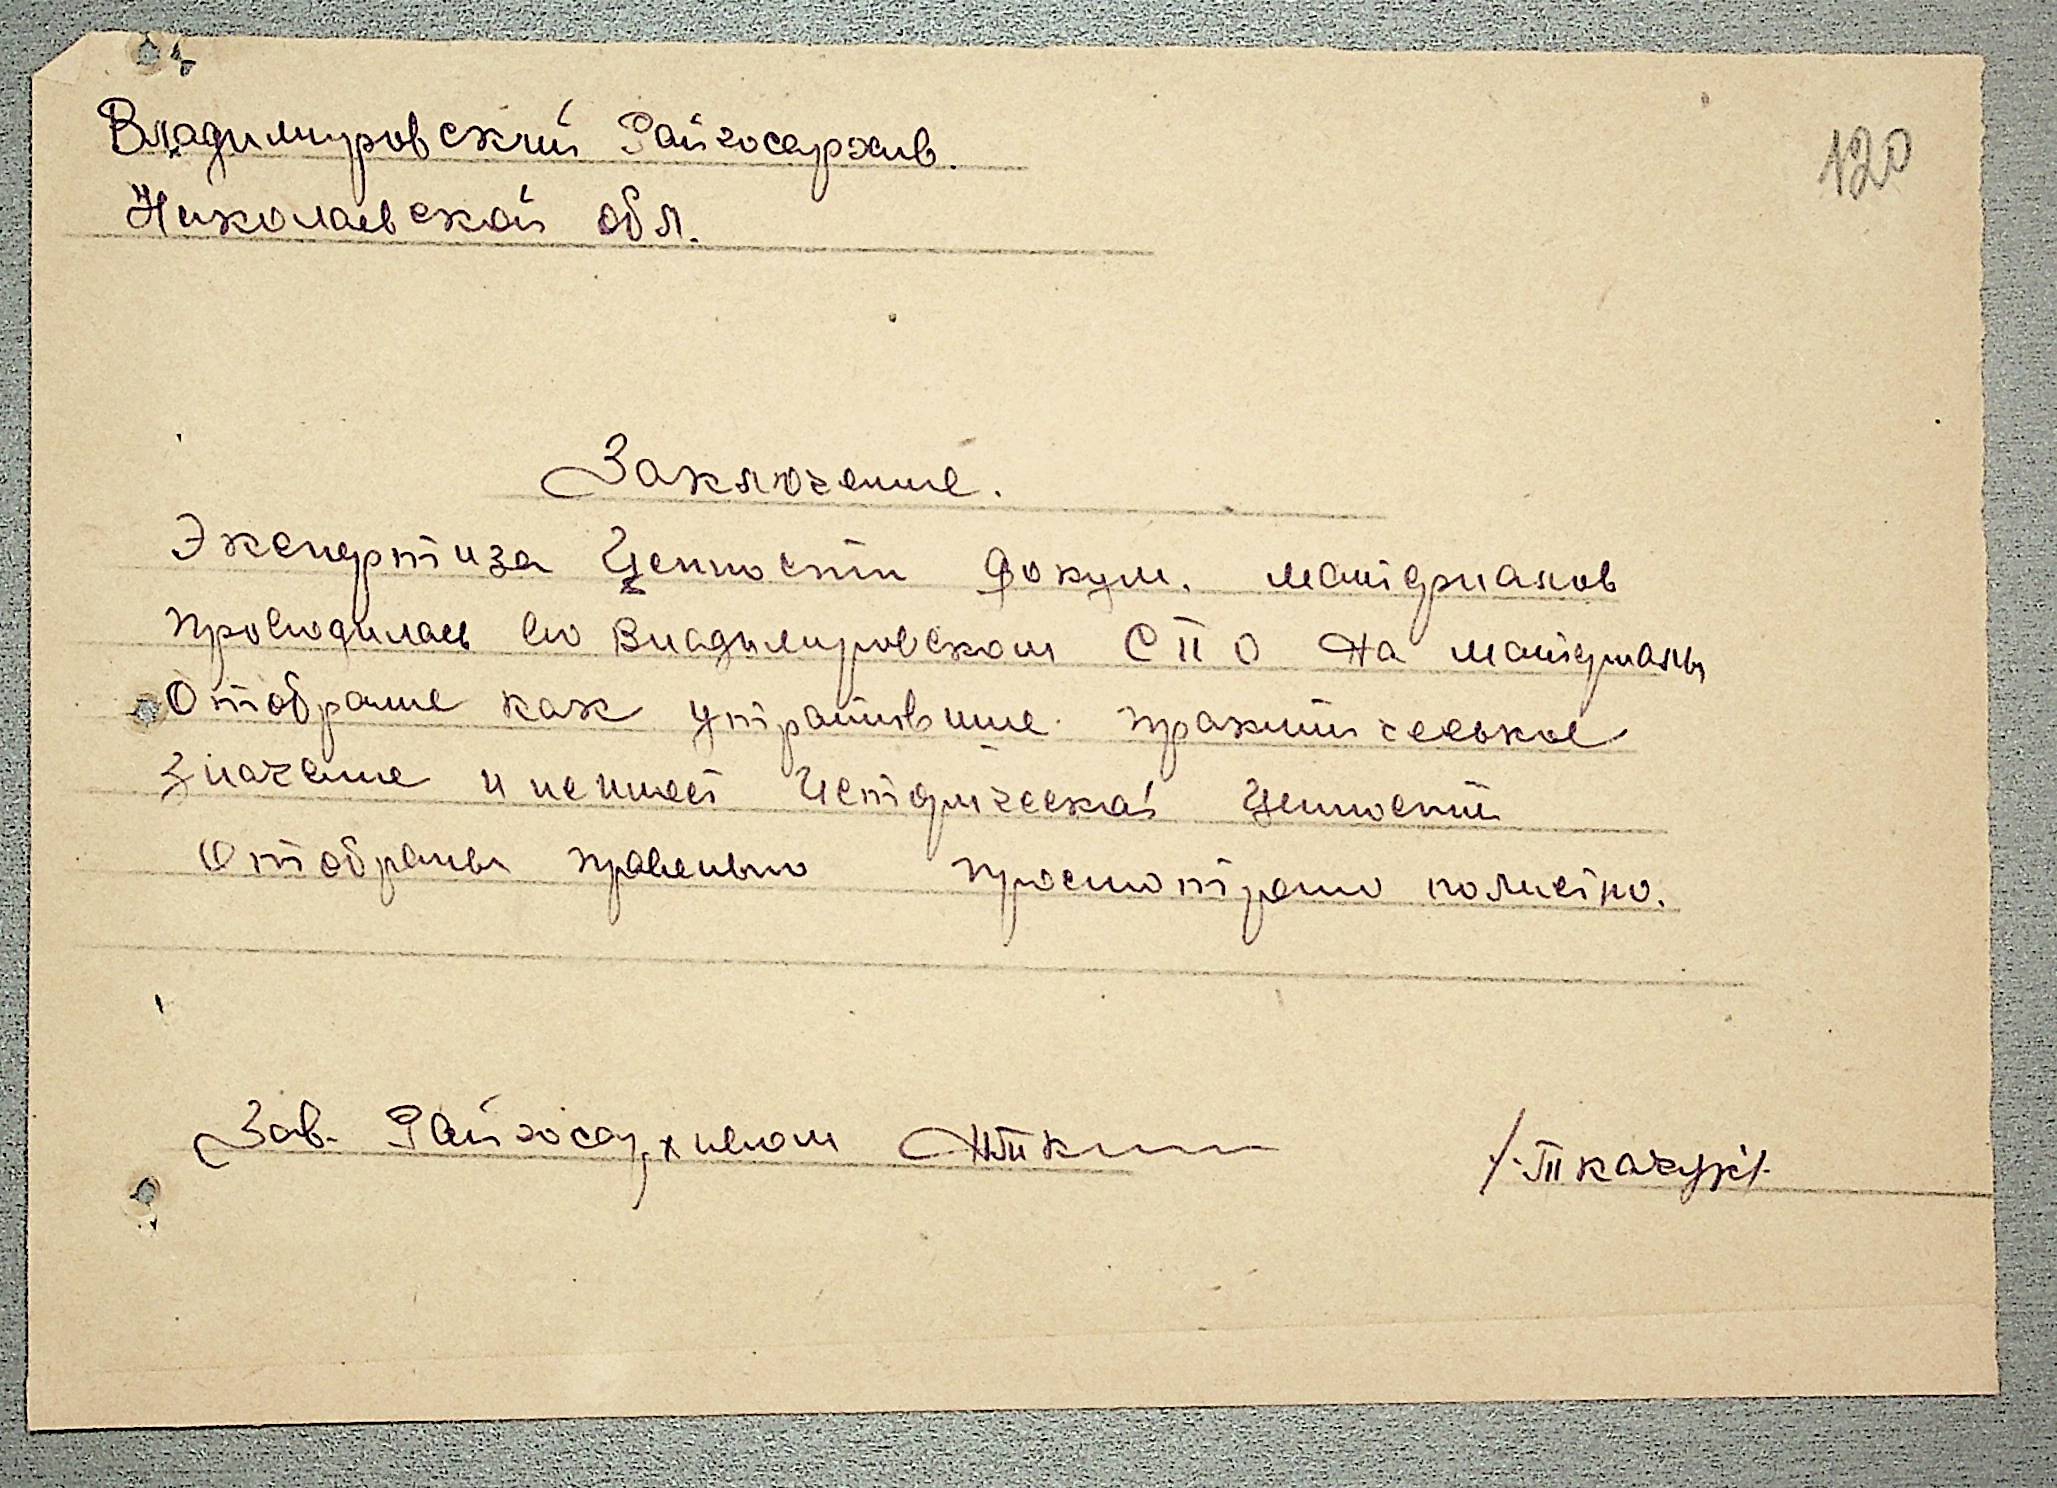 120
Владимировский Райгосархив.
Николаевской обл.
Заключение.
Экспертиза Ценности докум. материалов
проводилась во Владимировском СПО на материалы
Отобраные как утратившие практическое
значение и неимеет Исторической Ценности
Отобраны правельно просмотрено полистно.
Зав. Райгосархивом
/Ткачук/.